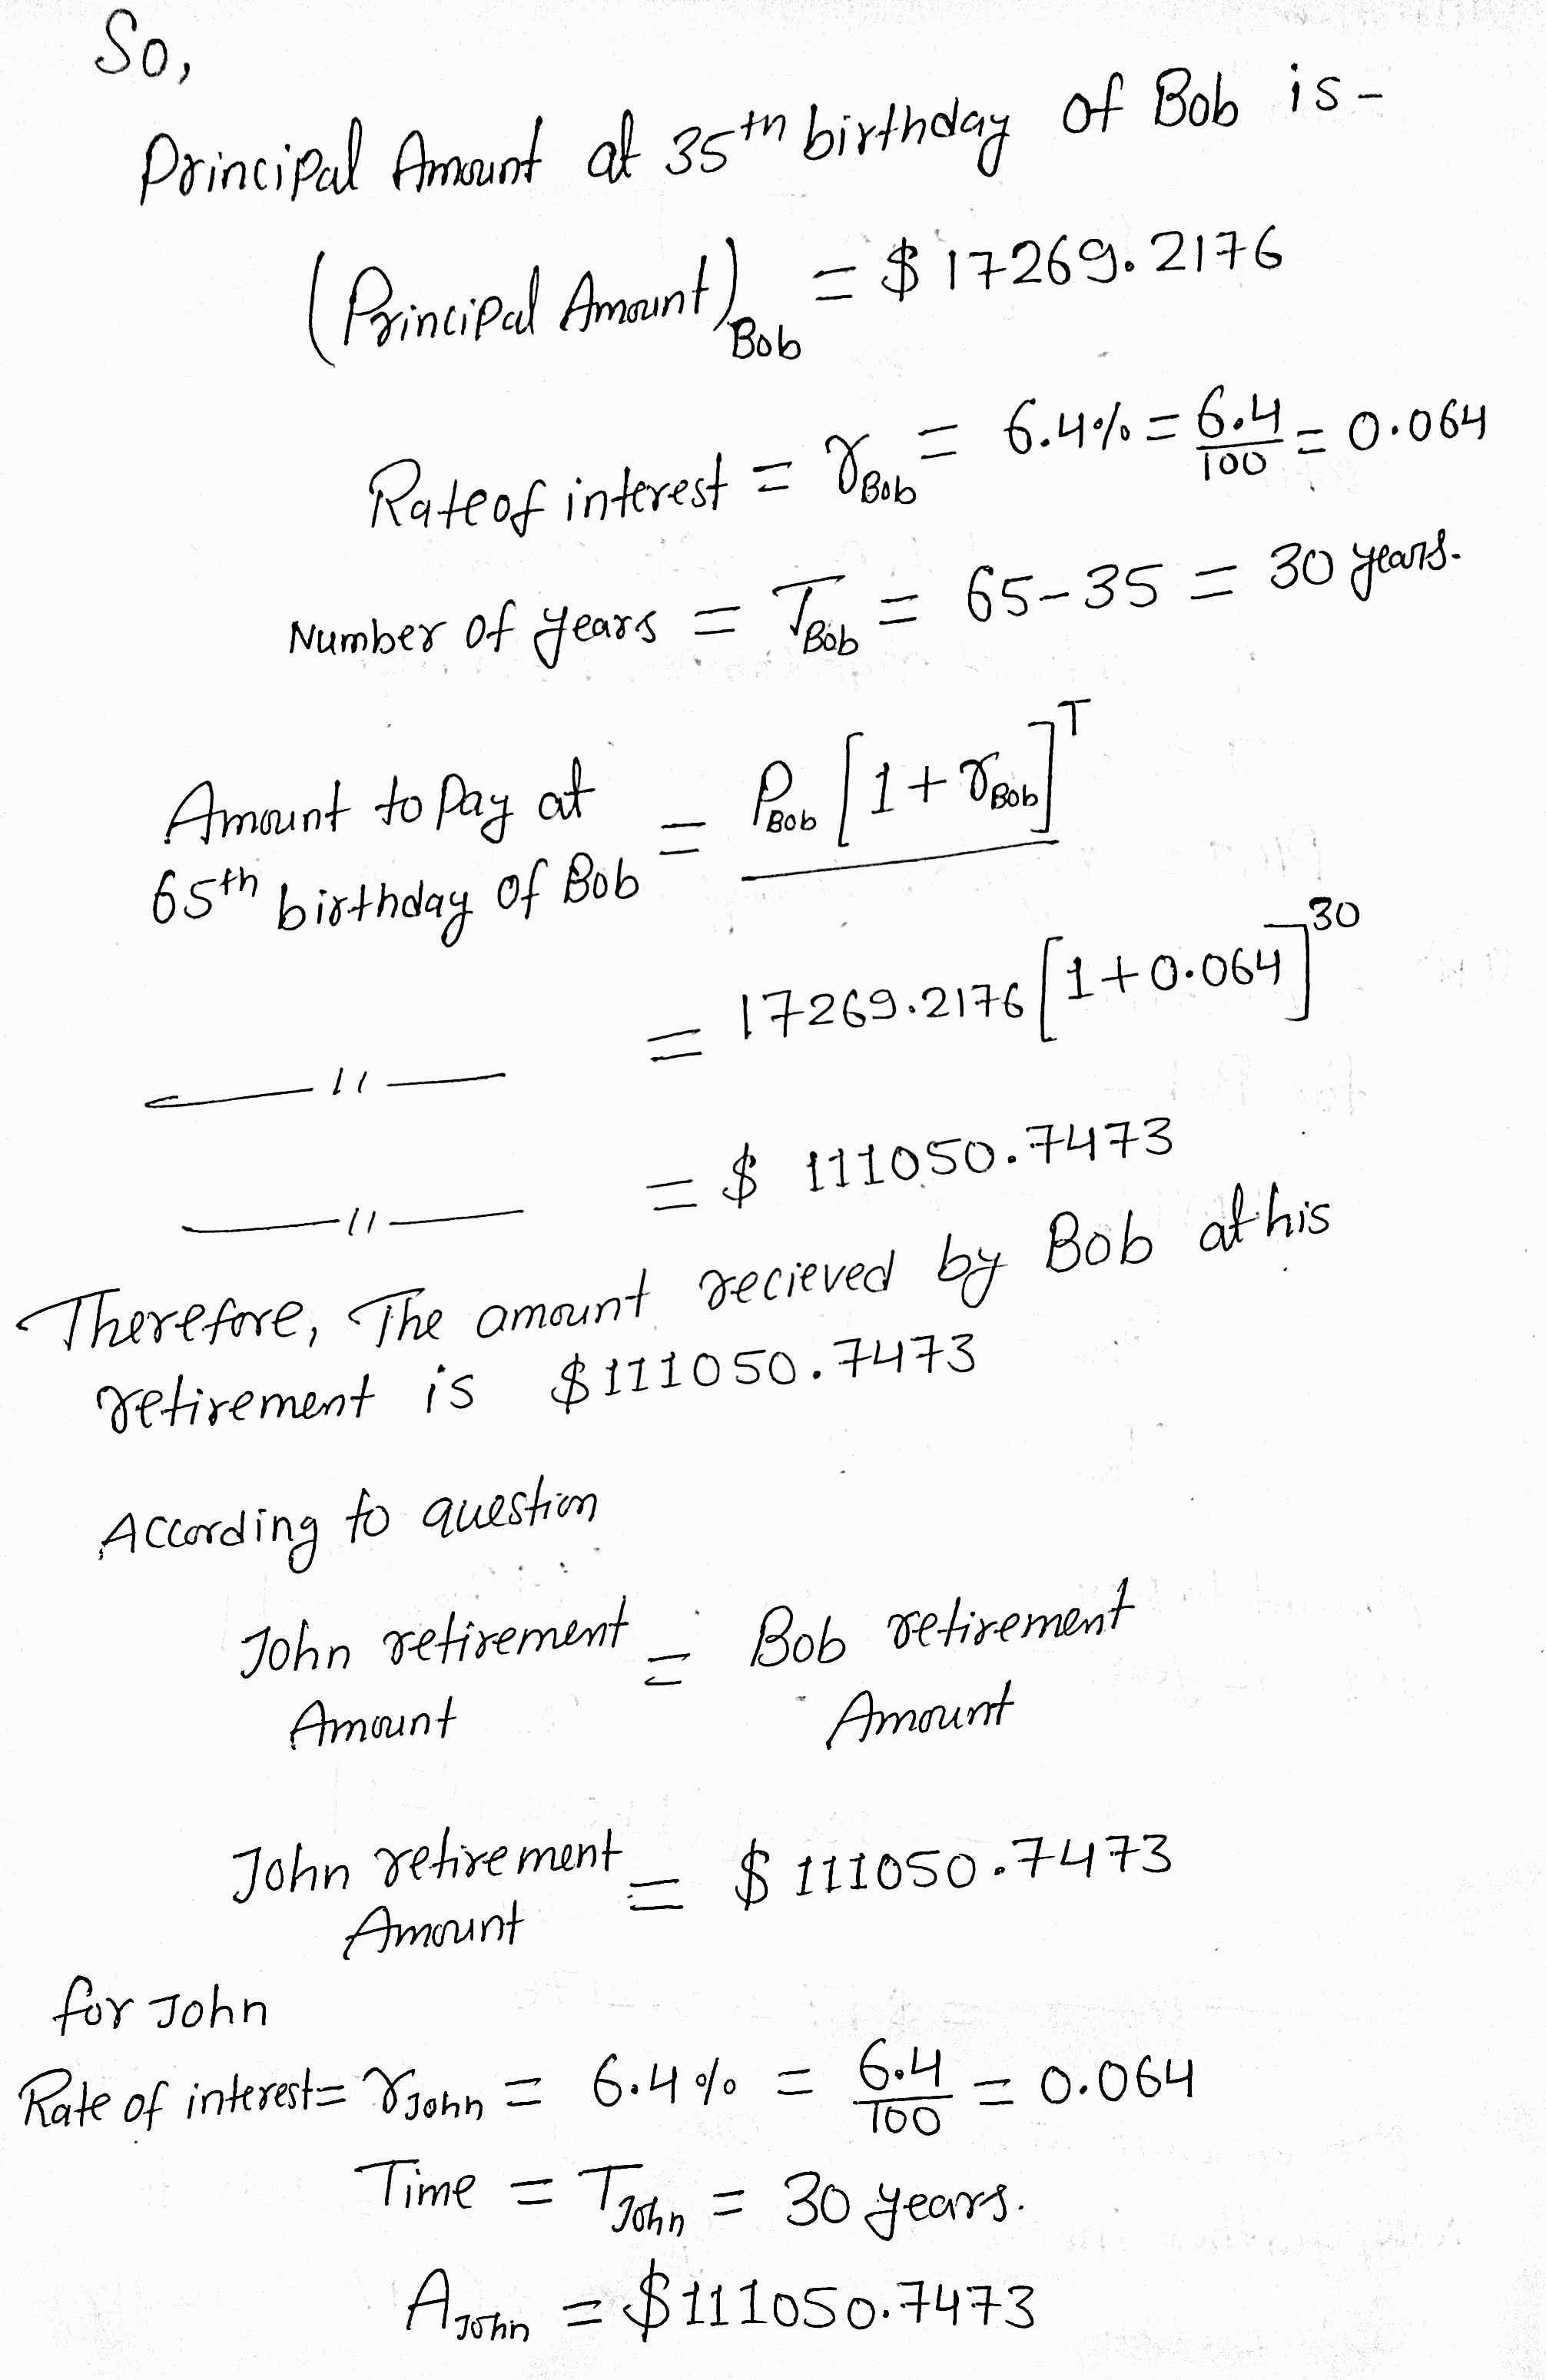 So,
Principal Amount at 35th birthday of Bob is -
(Principal Amount)Bob = $ 17269.2176
Rate of interest = rBob = 6.4% = 6.4/100 = 0.064
Number of years = TBob = 65-35 = 30 years.
Amount to Pay at = PBob [1+rBob]^T
65th birthday of Bob
—11— = 17269.2176 [1+0.064]^30
—11— = $ 111050.7473
Therefore, The amount recieved by Bob at his
retirement is $111050.7473
According to question
John retirement = Bob retirement
Amount Amount
John retirement = $ 111050.7473
Amount
for John
Rate of interest = rJohn = 6.4% = 6.4/100 = 0.064
Time = TJohn = 30 years.
AJohn = $111050.7473